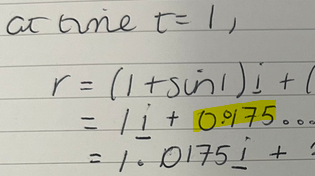 at time t = 1,
r = (1+sin1)i + (
= 1i + 0.0175...
= 1.0175i +